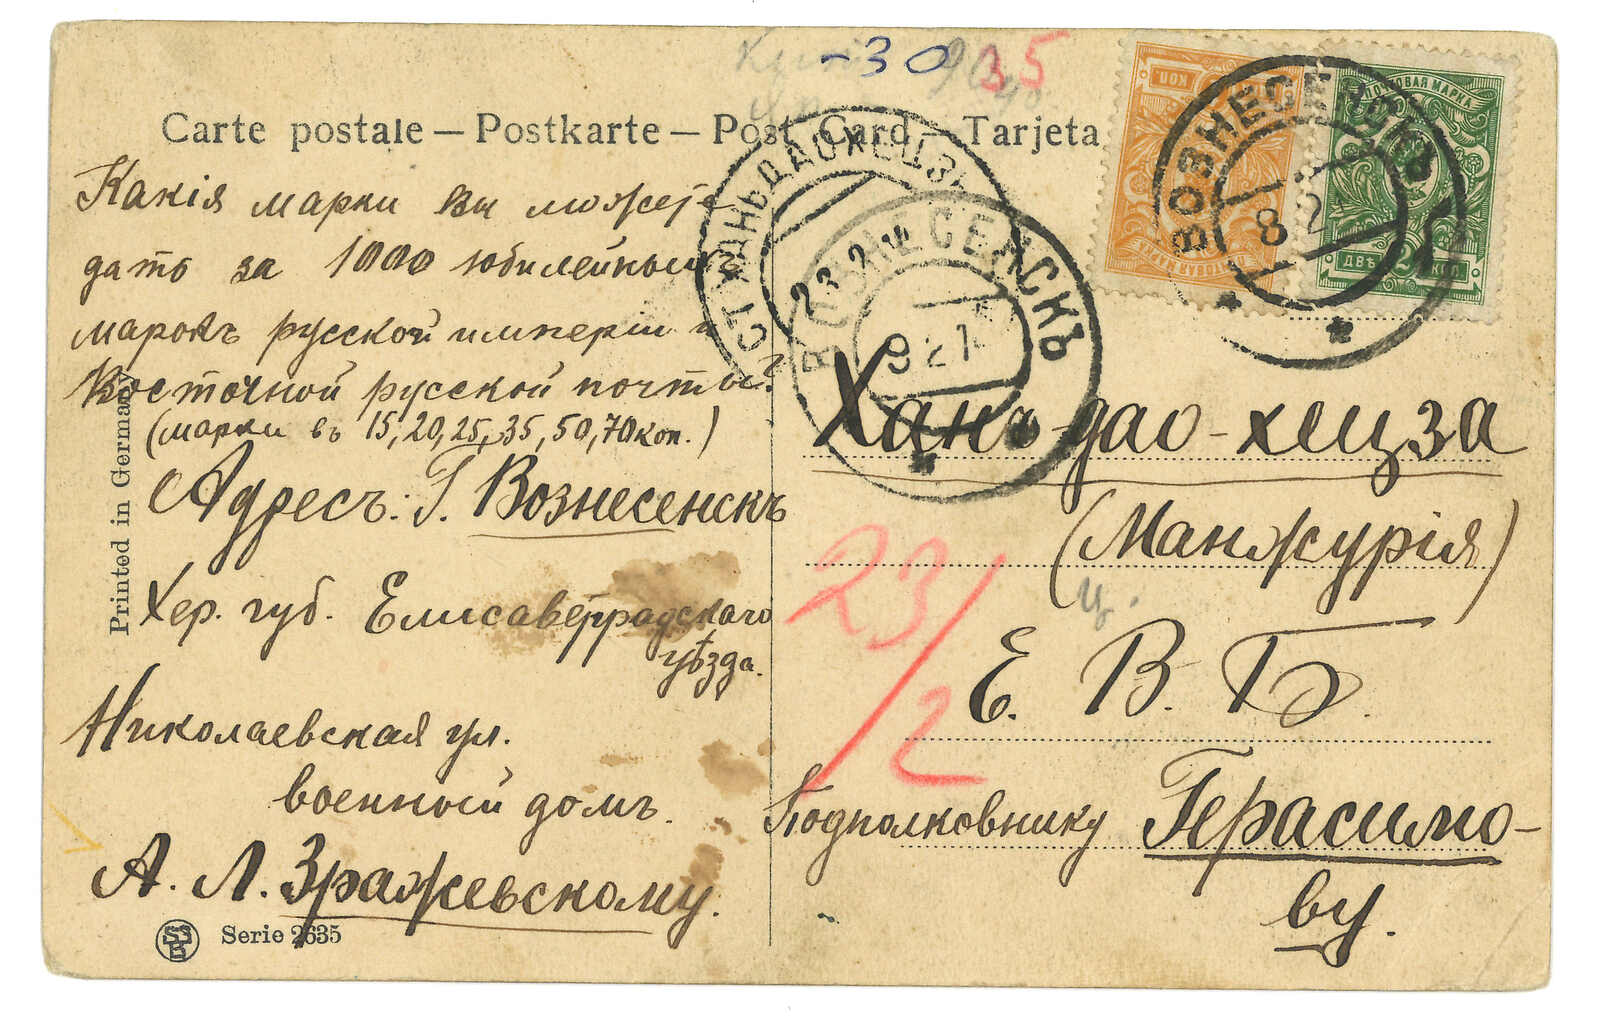 -30 35
Carte postale — Postkarte — Post Card — Tarjeta
Какія марки Вы можете
дать за 1000 юбилейныхъ
марокъ русской имперіи и
Восточной русской почты?
(марки въ 15, 20, 25, 35, 50, 70 коп.)
Адресъ: Г. Вознесенскъ
Хер. губ. Елисаветградскаго
уѣзда.
Николаевская ул.
военный домъ.
А. Л. Зражевскому.
Printed in Germany
SSB
Serie 2635
КОП.
ПОЧТОВАЯ МАРКА
1
ПОЧТОВАЯ МАРКА
ДВѢ 2 КОП.
ВОЗНЕСЕНСКЪ
8 2
СТ. ХАНЬДАОХЕЦЗЫ
23 2 14
ВОЗНЕСЕНСКЪ
9 2 1
Ханъ-дао-хецза
(Манжурія)
23/2
Е. В. Б.
Подполковнику Герасимо-
ву.